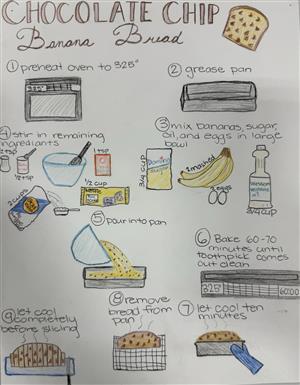 CHOCOLATE CHIP
Banana Bread
① preheat oven to 325°
② grease pan
③ mix bananas, sugar,
oil, and eggs in large
bowl
3/4 cup
2 mashed
2 eggs
3/4 cup
④ stir in remaining
ingredients
1 tsp
1/2 cup
2 cups
⑤ pour into pan
⑥ Bake 60-70
minutes until
toothpick comes
out clean
325°
60:00
⑦ let cool ten
minutes
⑧ remove
bread from
pan
⑨ let cool
completely
before slicing